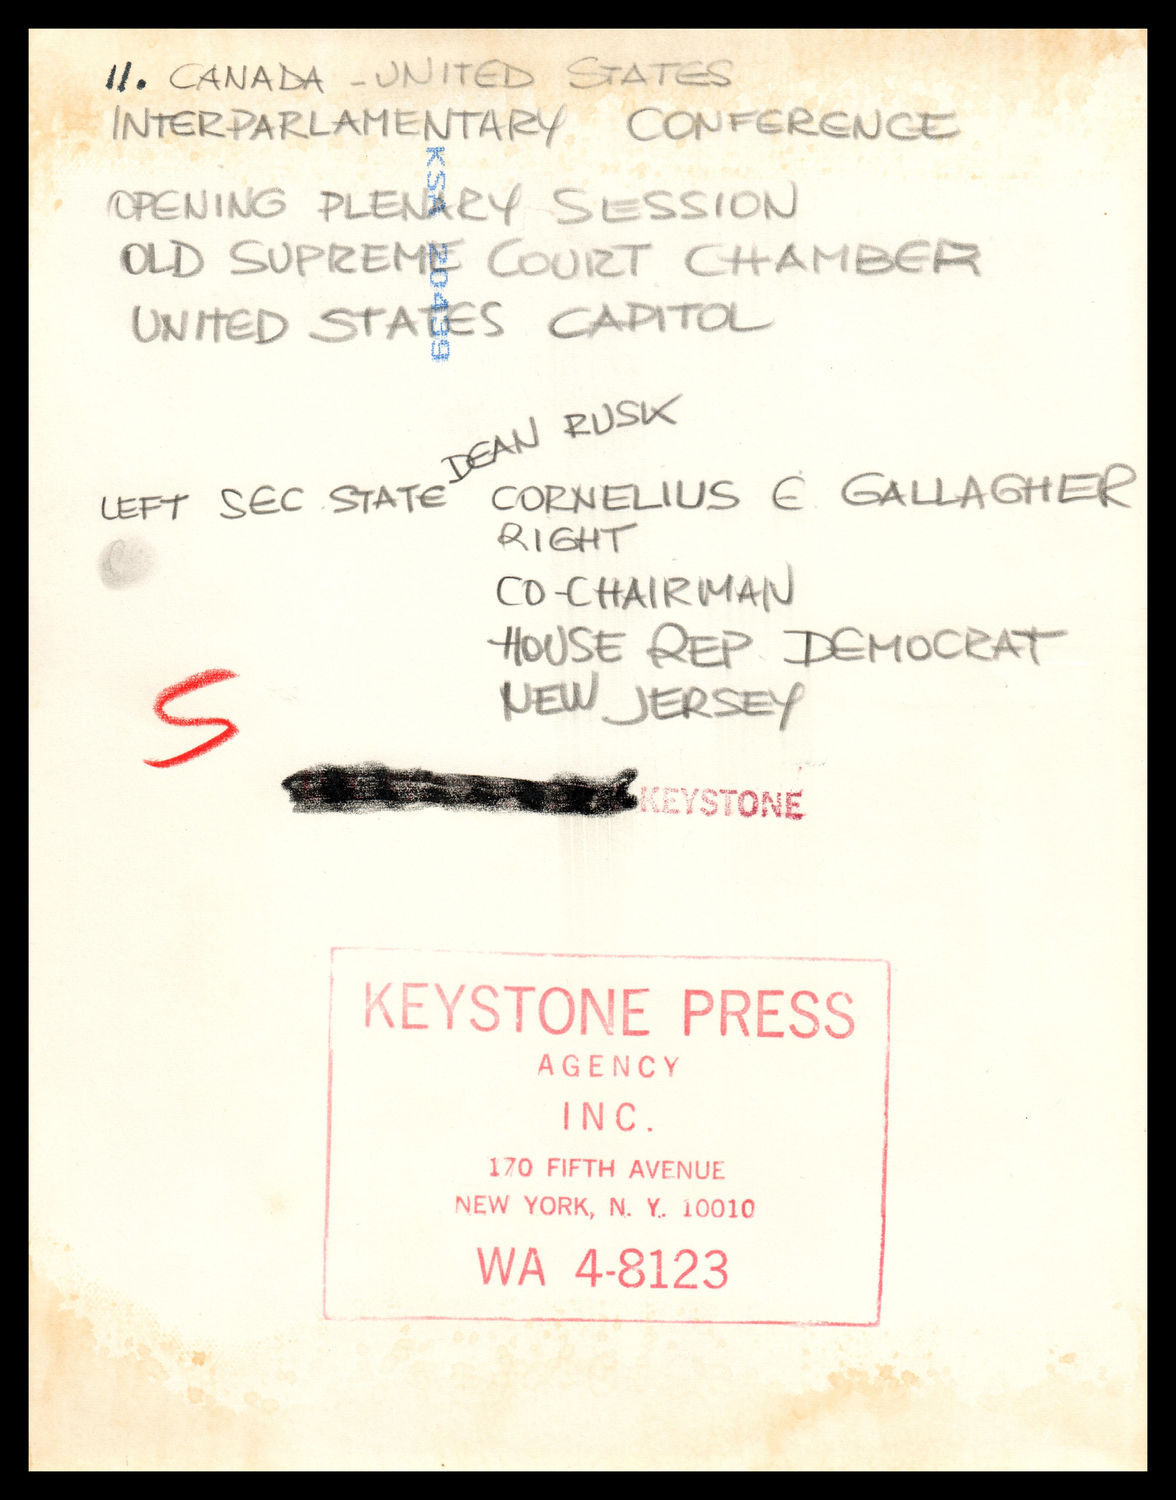 11. CANADA - UNITED STATES
INTERPARLAMENTARY CONFERENCE
OPENING PLENARY SESSION
OLD SUPREME COURT CHAMBER
UNITED STATES CAPITOL
KSA 20499
DEAN RUSK
LEFT SEC STATE CORNELIUS E GALLAGHER
RIGHT
CO-CHAIRMAN
HOUSE REP. DEMOCRAT
NEW JERSEY
S
KEYSTONE
KEYSTONE PRESS
AGENCY
INC.
170 FIFTH AVENUE
NEW YORK, N. Y. 10010
WA 4-8123